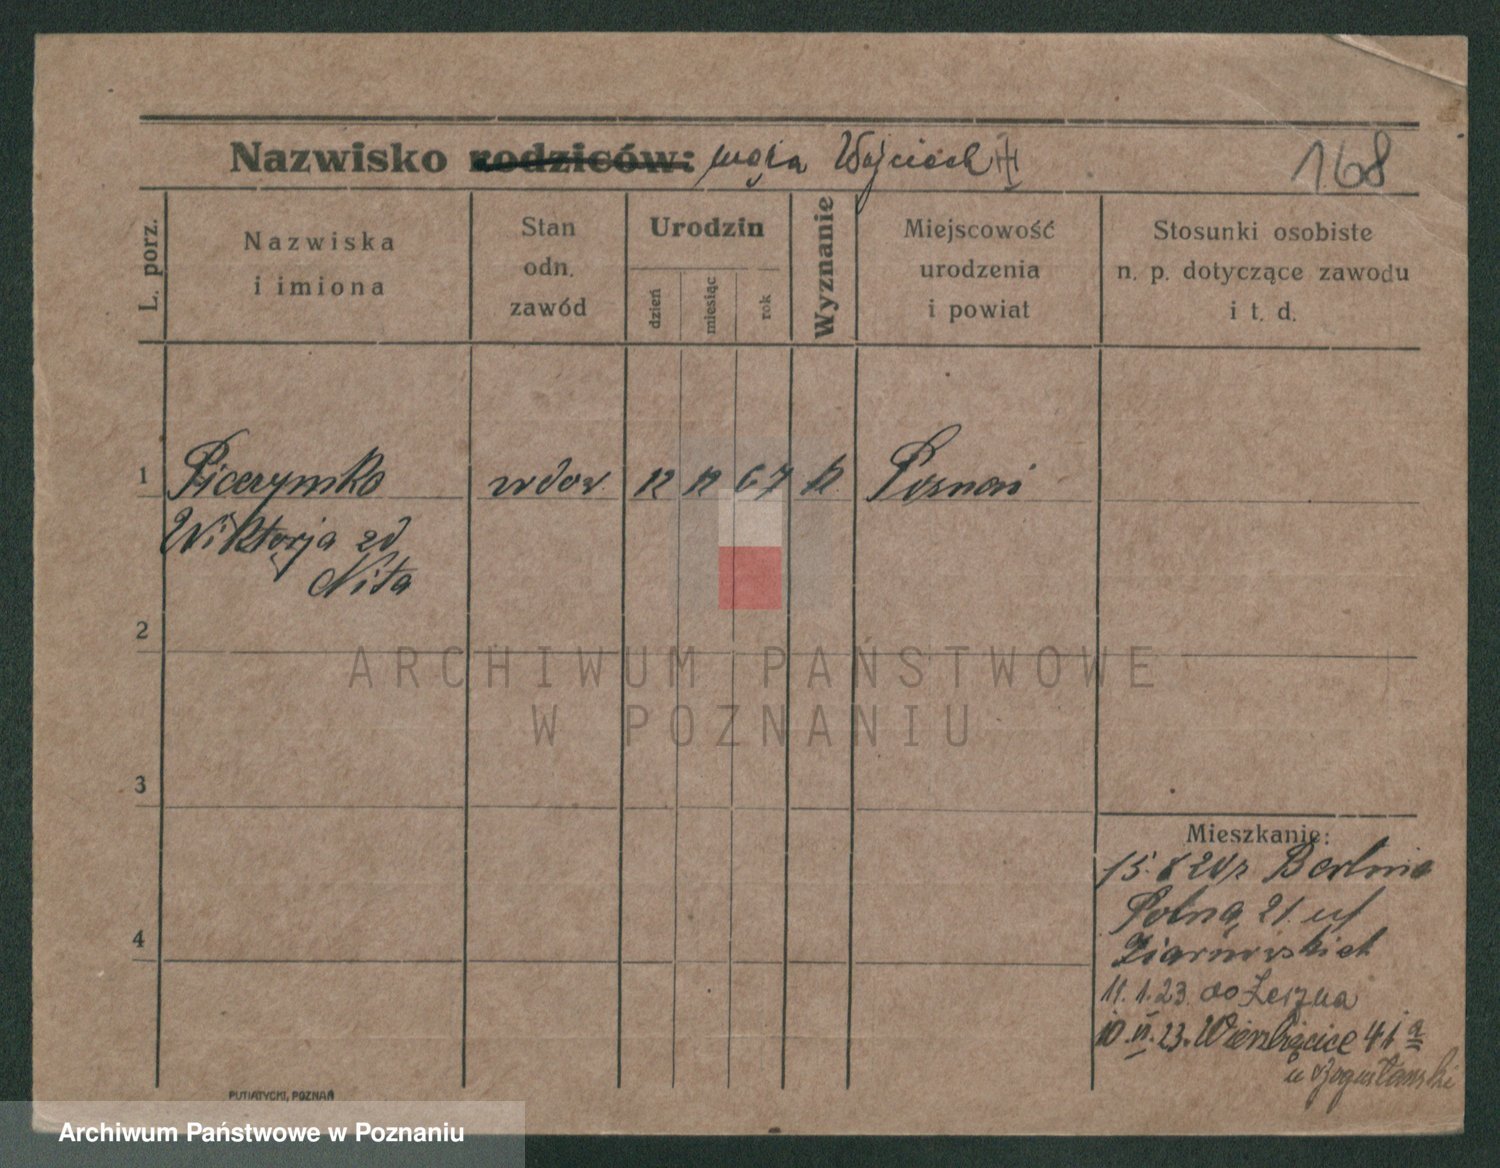 Nazwisko rodziców: męża Wojciech
168
L. porz.
Nazwiska
i imiona
Stan
odn.
zawód
Urodzin
dzień
miesiąc
rok
Wyznanie
Miejscowość
urodzenia
i powiat
Stosunki osobiste
n. p. dotyczące zawodu
i t. d.
1
wdow.
12
12
67
k.
Poznań
Wiktorja zd
Nita
2
3
4
Mieszkanie:
15. 8 20 z Berlina
Polna 21. u
11. 1. 23. do
10. VI. 23. Wierzbięcice 41 a
u Bogusławski
PUTIATYCKI, POZNAŃ
ARCHIWUM PAŃSTWOWE
W POZNANIU
Archiwum Państwowe w Poznaniu